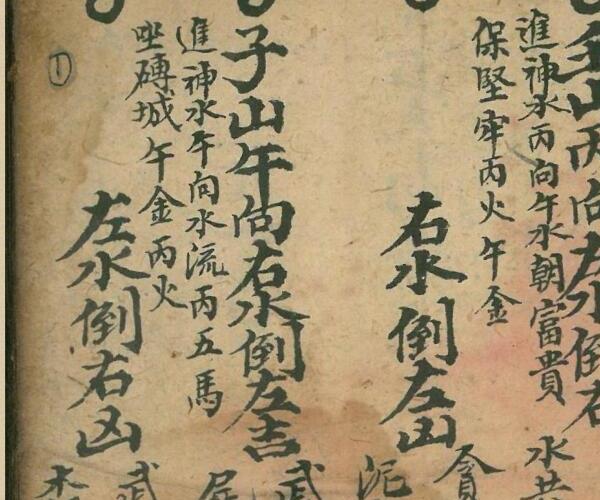 壬山丙向左水倒右
進神水丙向午水朝富貴
保堅牢丙火午金
右水倒左山
子山午向右水倒左吉
進神水午向水流丙五馬
坐磚城午金丙火
左水倒右凶
①
水
貪
泥
武
武